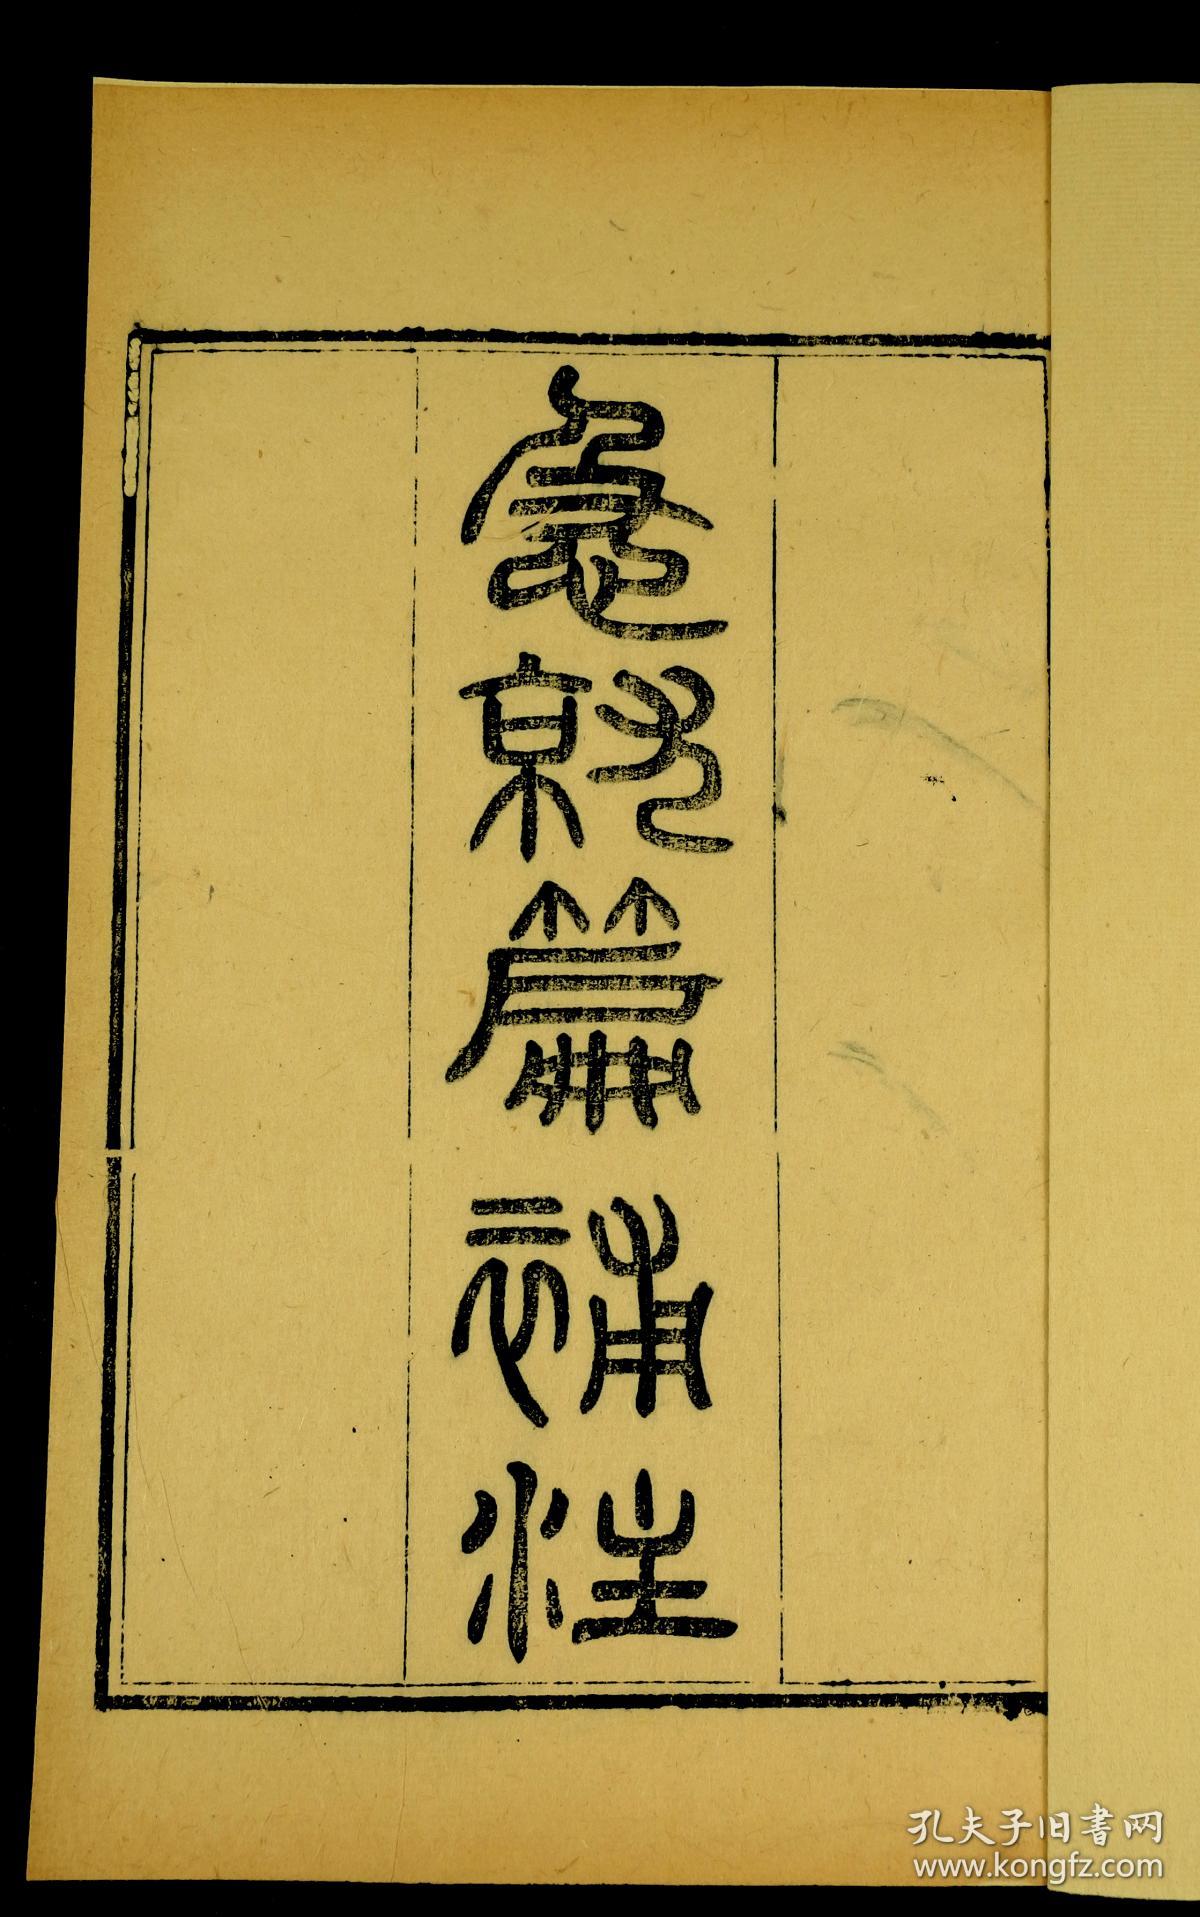 急就篇補注
孔夫子旧書网
www.kongfz.com